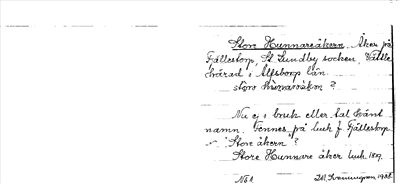 Store Hunnareåkern Åker på
Fjällestorp, St Lundby socken, Vättle
härad i Älfsborgs län.
störe hʉnaråkən ?
Nu ej i bruk eller tal känt
namn. Finnes på luch f Fjällestorp
Store åkern ?
Store Hunnare åker luch 1809.
No 1